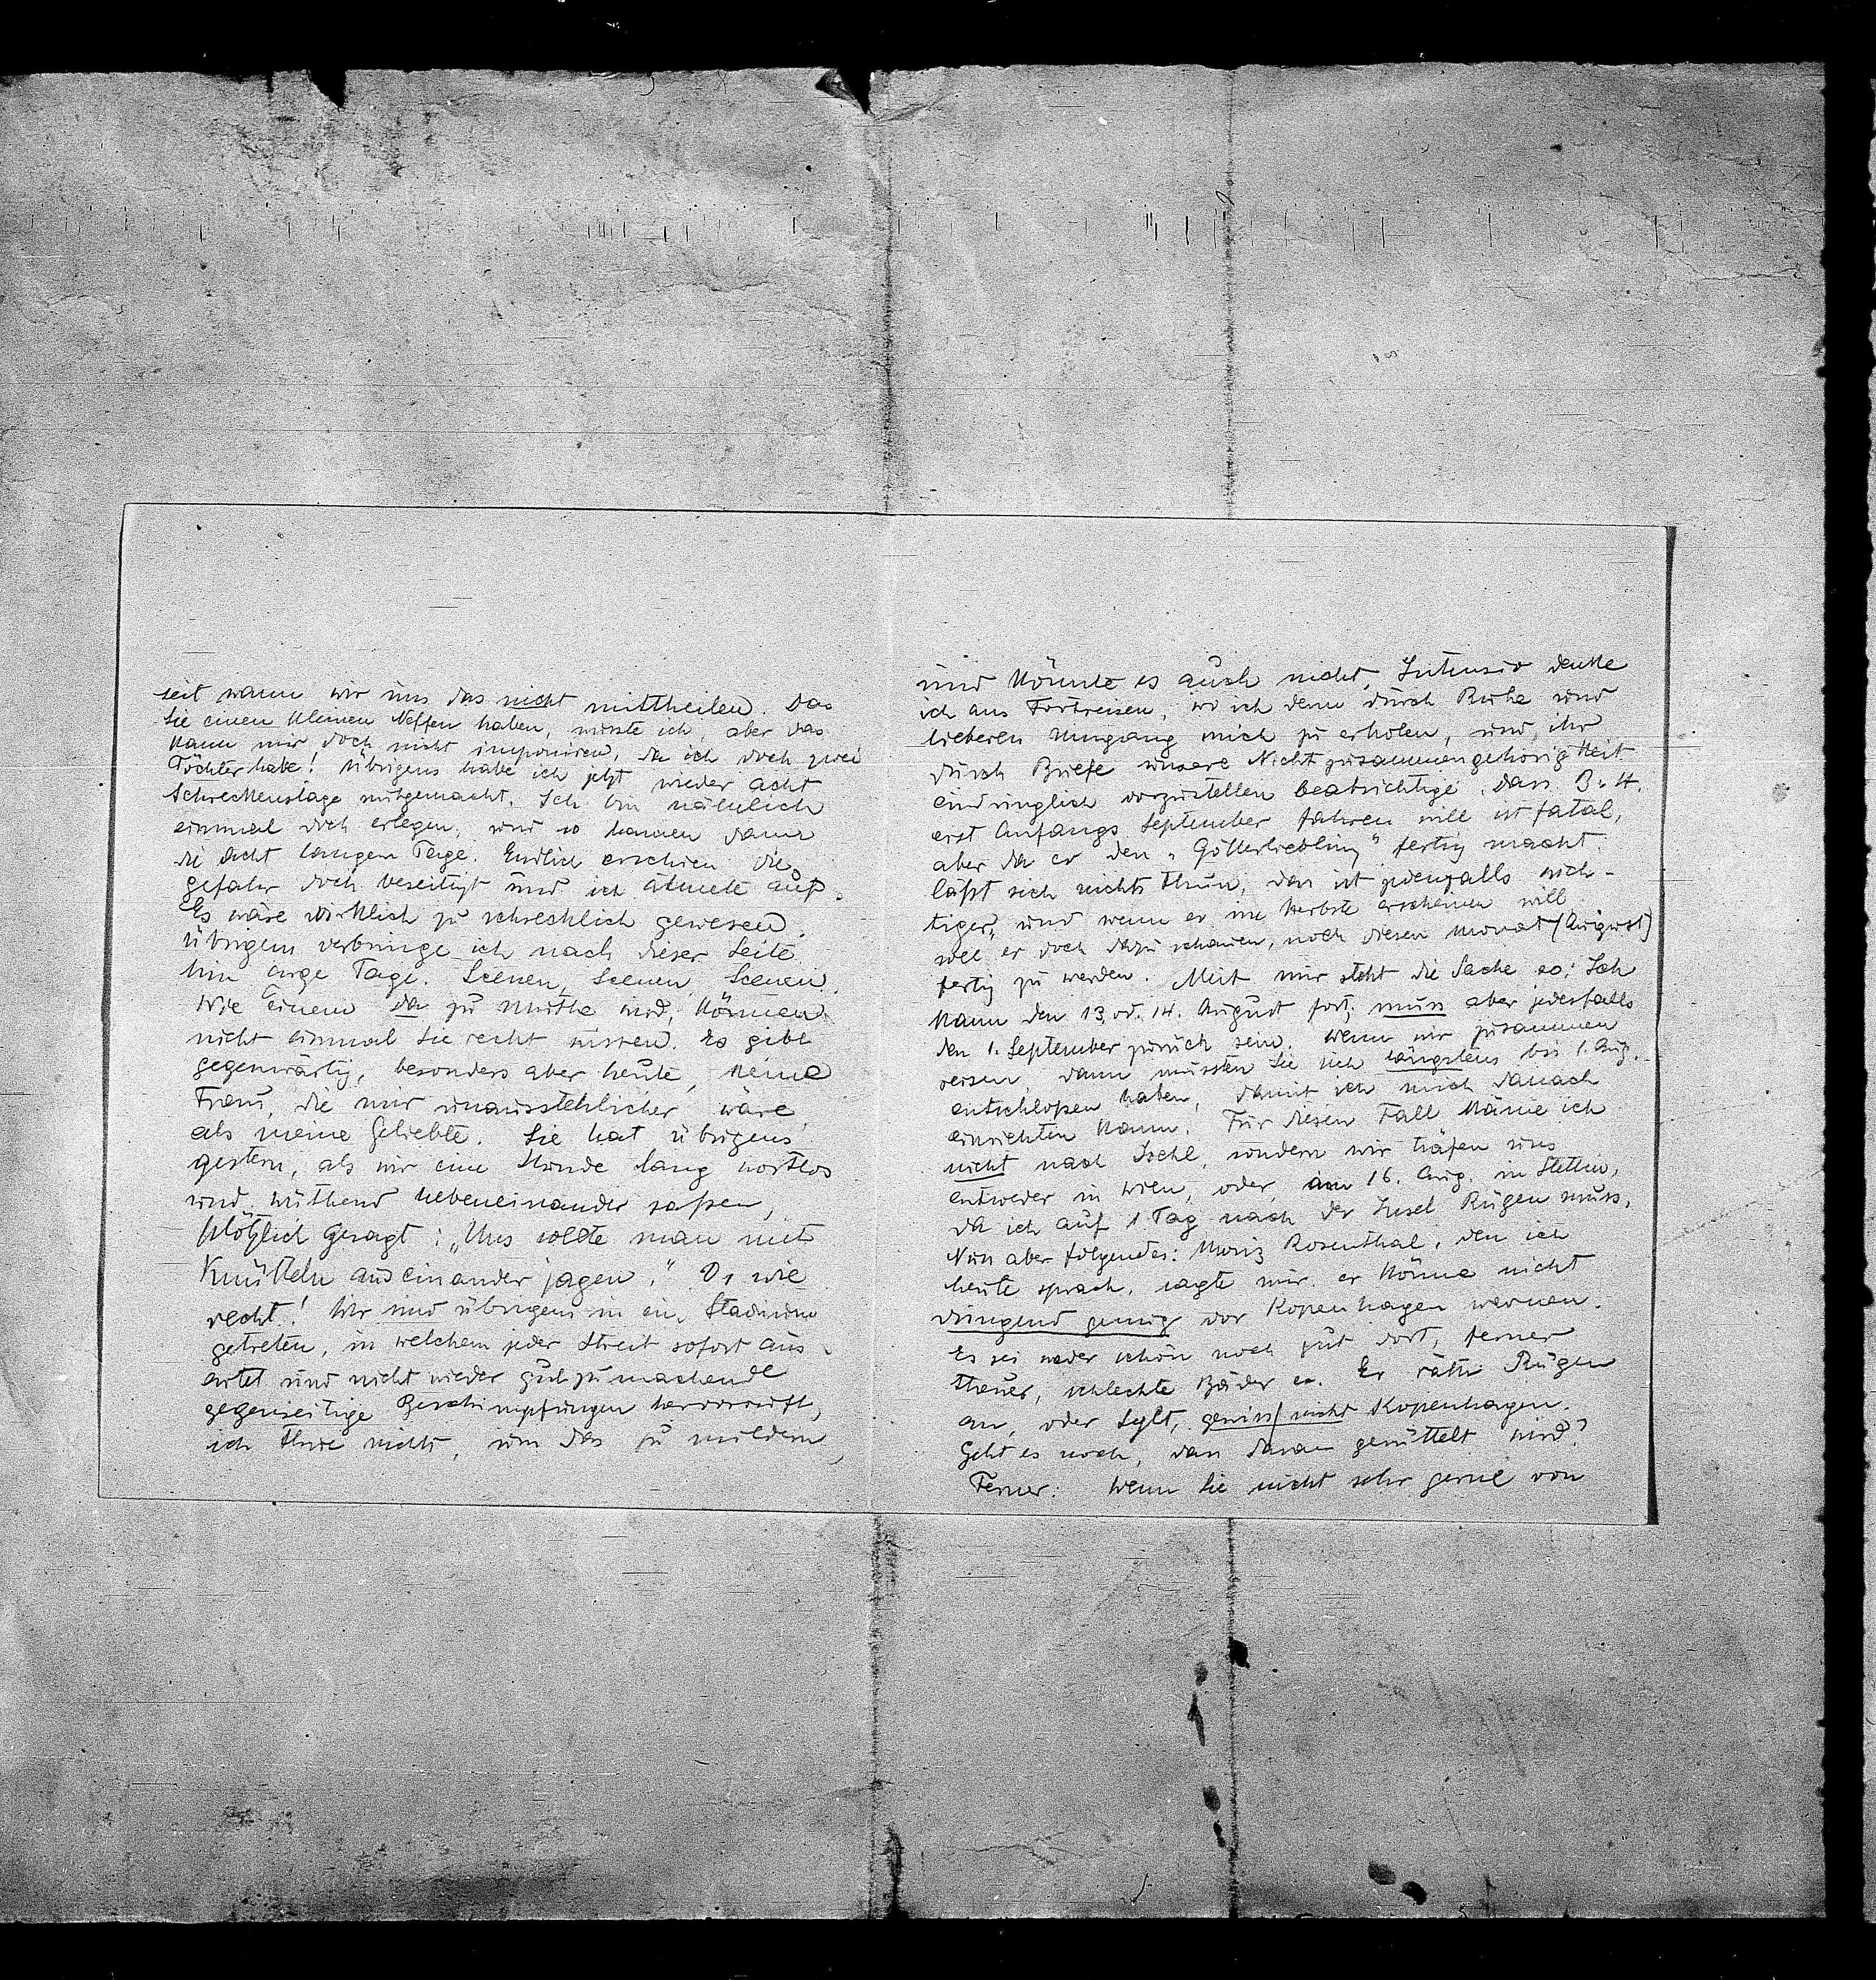 seit wann wir uns das nicht mittheilen. Das
Sie einen kleinen Neffen haben, wusste ich, aber das
kann mir doch nicht imponiren, da ich doch zwei
Töchter habe! Übrigens habe ich jetzt wieder acht
Schreckenstage mitgemacht. Ich bin nämlich
einmal doch erlegen, und so kamen dann
die acht langen Tage. Endlich erschien die
Gefahr doch beseitigt und ich atmete auf.
Es wäre wirklich zu schrecklich gewesen.
Übrigens verbringe ich nach dieser Seite
hin arge Tage. Scenen, Scenen, Scenen.
Wie einem da zu Muthe wird, können
nicht einmal Sie recht wissen. Es gibt
gegenwärtig, besonders aber heute, keine
Frau, die mir unausstehlicher wäre,
als meine Geliebte. Sie hat übrigens
gestern, als wir eine Stunde lang wortlos
und wüthend nebeneinander saßen,
plötzlich gesagt: „Uns sollte man mit
Knütteln auseinander jagen." O, wie
recht! Wir sind übrigens in ein Stadium
getreten, in welchem jeder Streit sofort aus-
artet und nicht wieder gutzumachende
gegenseitige Beschimpfungen hervorruft,
ich thue nichts, um das zu mildern,
und könnte es auch nicht. Intensiv denke
ich ans Fortreisen, wo ich denn durch Ruhe und
lieberen Umgang mich zu erholen, und ihr
durch Briefe unsere Nichtzusammengehörigkeit
eindringlich vorzustellen beabsichtige. Dass B.-H.
erst Anfangs September fahren will ist fatal,
aber da er den „Götterliebling" fertig macht
läßt sich nichts thun, das ist jedenfalls wich-
tiger, und wenn er im Herbste erscheinen will
soll er doch dazu schauen, noch diesen Monat (August)
fertig zu werden. Mit mir steht die Sache so: Ich
kann den 13. od. 14. August fort, muss aber jedesfalls
den 1. September zurück sein. Wenn wir zusammen
reisen, dann müssten Sie sich längstens bis 1. Aug.
entschloßen haben, damit ich mich danach
einrichten kann. Für diesen Fall käme ich
nicht nach Ischl, sondern wir träfen uns
entweder in Wien, oder am 16. Aug. in Stettin,
da ich auf 1 Tag nach der Insel Rügen muss.
Nun aber folgendes: Moriz Rosenthal, den ich
heute sprach, sagte mir, er könne nicht
dringend genug vor Kopenhagen warnen.
Es sei weder schön noch gut dort, ferner
theuer, schlechte Bäder etc. Er räth Rügen
an, oder Sylt, gewiss nicht Kopenhagen.
Geht es noch, dass daran gerüttelt wird?
Ferner: Wenn Sie nicht sehr gerne von